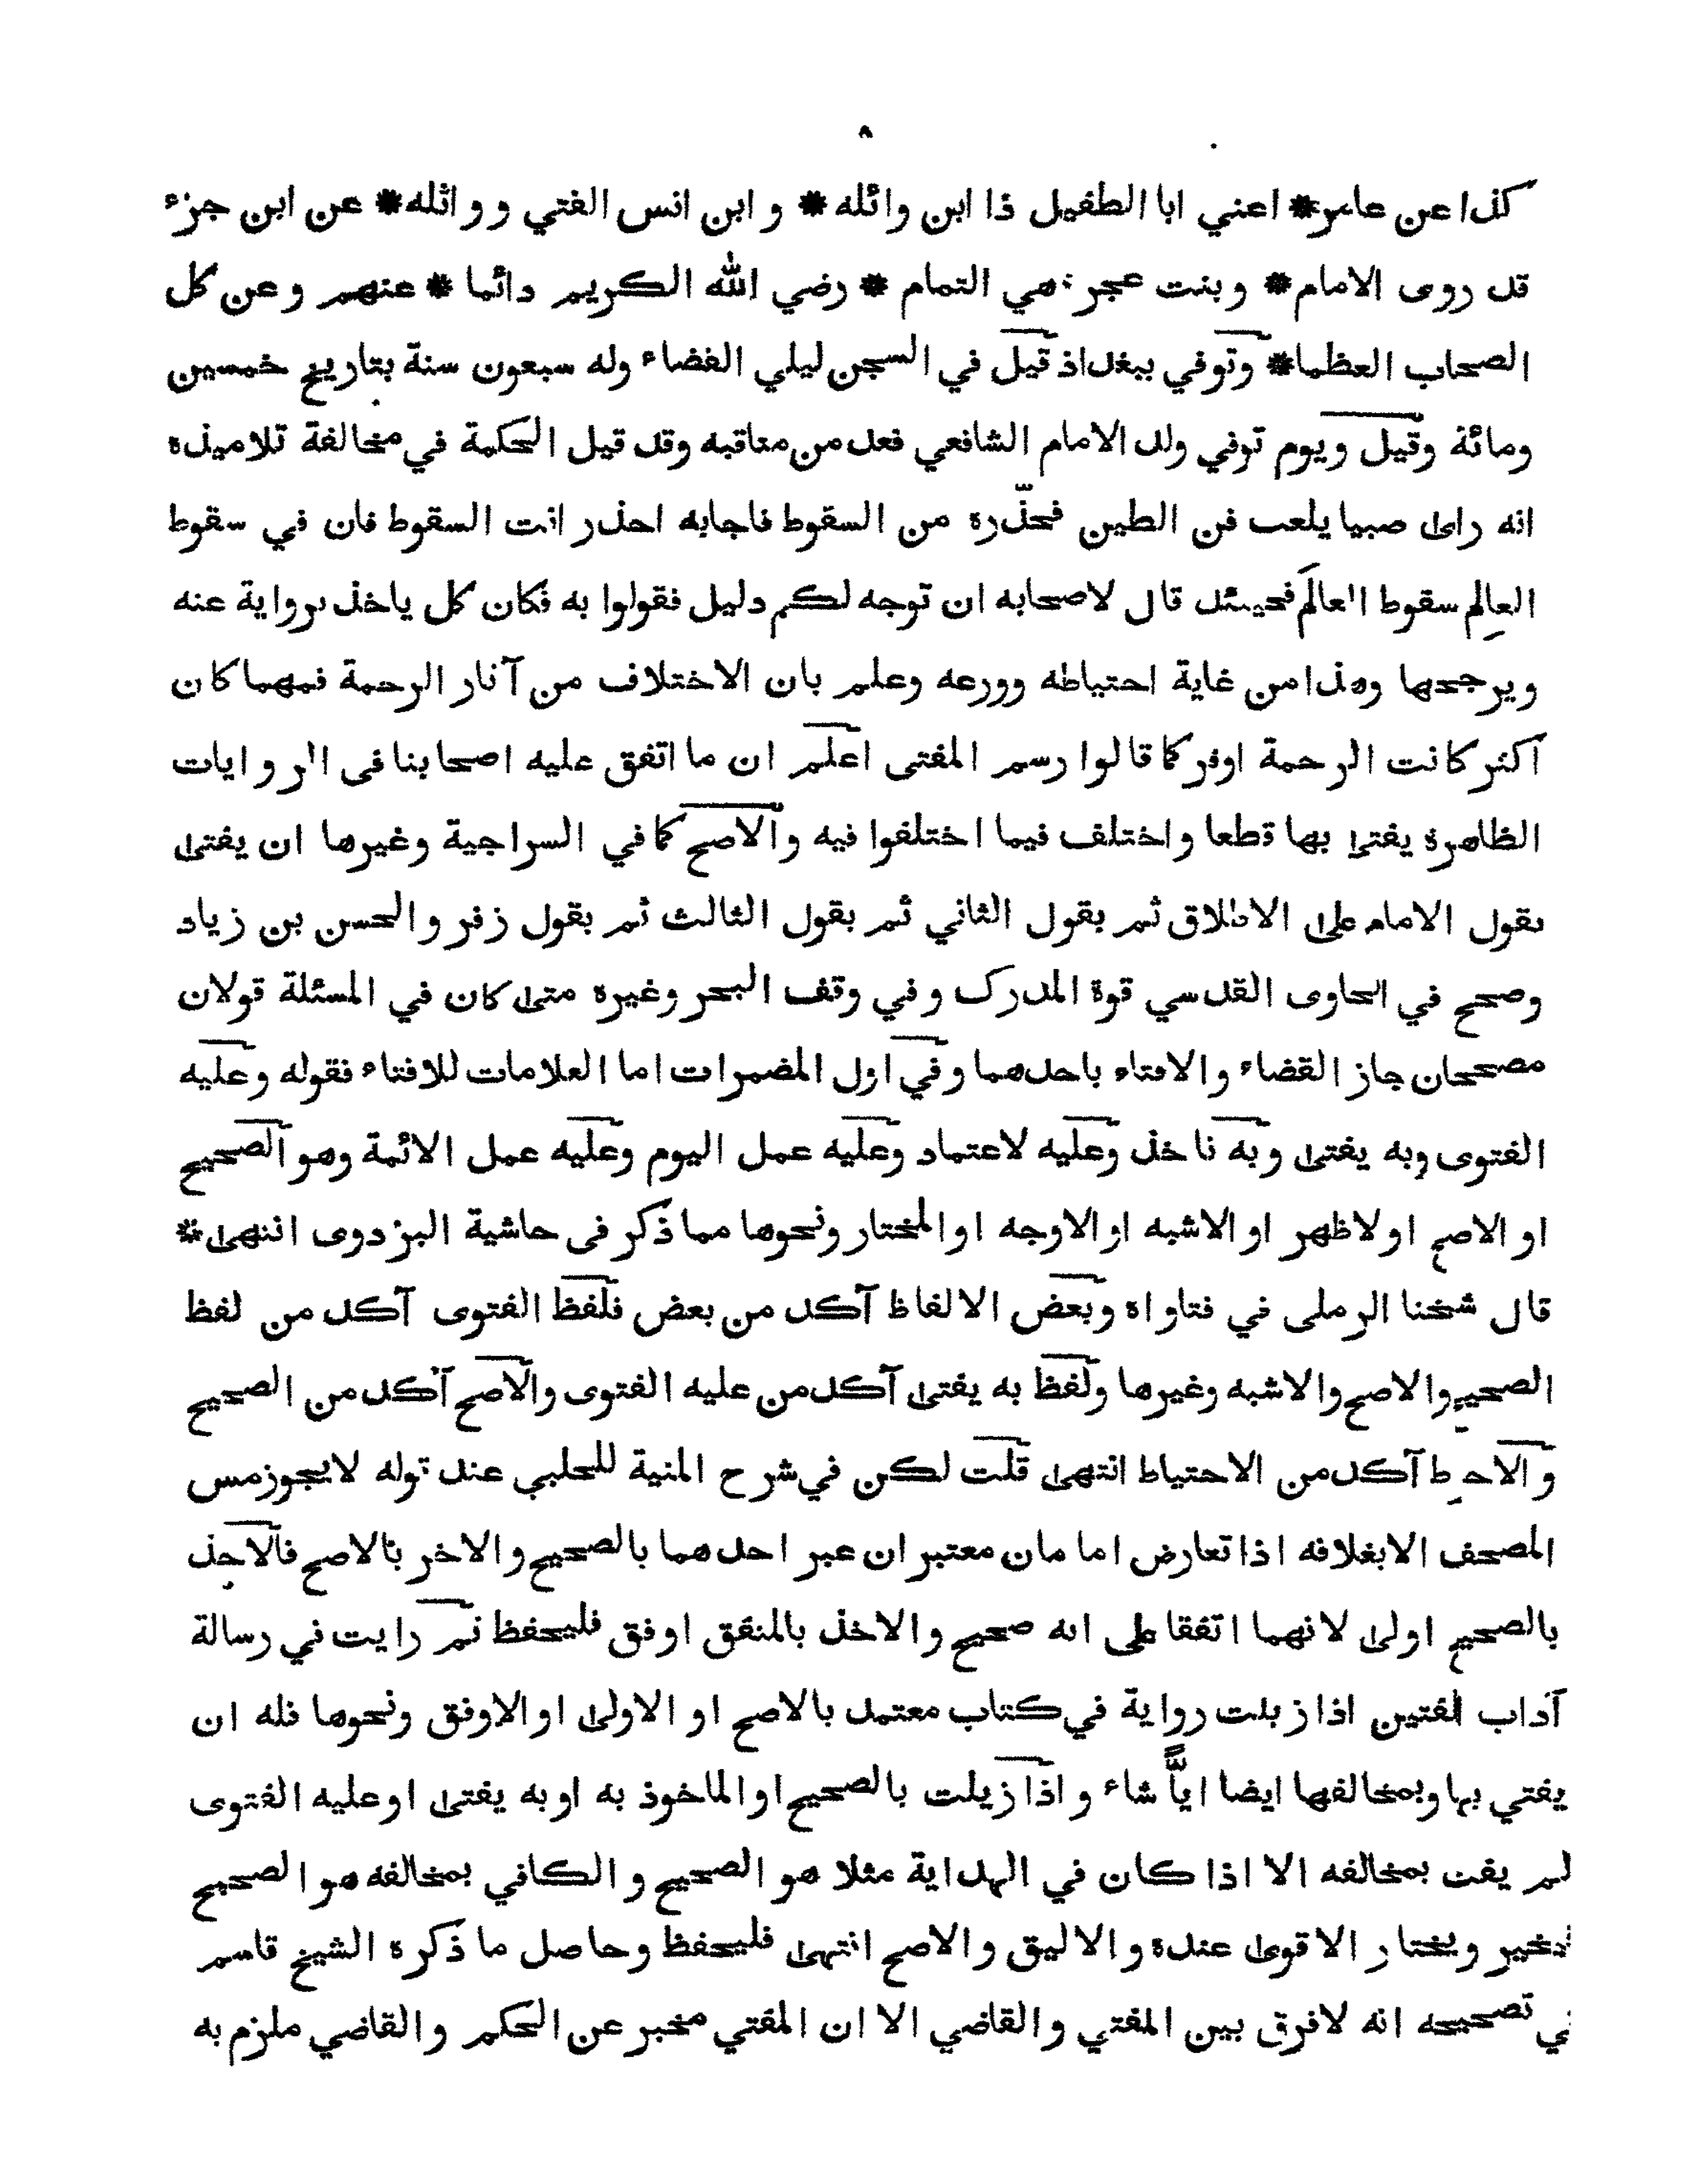 ٨
كذا عن عامر * اعني ابا الطفيل ذا ابن وائله * و ابن انس الفتي و واثله * عن ابن جزء
قد روى الامام * وبنت عجر هي التمام * رضي الله الكريم دائما * عنهم وعن كل
الصحاب العظما * وتوفي ببغداذ قيل في السجن ليلي الفضاء وله سبعون سنة بتاريخ خمسين
ومائة وقيل ويوم توفي ولد الامام الشافعي فعد من مناقبه وقد قيل الحكمة في مخالفة تلاميذه
انه راى صبيا يلعب فن الطين فحذّره من السقوط فاجابه احذر انت السقوط فان في سقوط
العالِم سقوط العالَم فحينئذ قال لاصحابه ان توجه لكم دليل فقولوا به فكان كل ياخذ برواية عنه
ويرجحها وهذا من غاية احتياطه وورعه وعلم بان الاختلاف من آثار الرحمة فمهما كان
اكثر كانت الرحمة اوفر كما قالوا رسم المفتى اعلم ان ما اتفق عليه اصحابنا فى الروايات
الظاهرة يفتى بها قطعا واختلف فيما اختلفوا فيه والاصح كما في السراجية وغيرها ان يفتى
بقول الامام على الاطلاق ثم بقول الثاني ثم بقول الثالث ثم بقول زفر والحسن بن زياد
وصحح في الحاوى القدسي قوة المدرك وفي وقف البحر وغيره متى كان في المسئلة قولان
مصححان جاز القضاء والافتاء باحدهما وفي اول المضمرات اما العلامات للافتاء فقوله وعليه
الفتوى وبه يفتى وبه ناخذ وعليه لاعتماد وعليه عمل اليوم وعليه عمل الائمة وهو الصحيح
او الاصح او لاظهر او الاشبه او الاوجه او المختار ونحوها مما ذكر فى حاشية البزدوى انتهى *
قال شخنا الرملى في فتاواه وبعض الالفاظ آكد من بعض فلفظ الفتوى آكد من لفظ
الصحيح والاصح والاشبه وغيرها ولفظ به يفتى آكد من عليه الفتوى والاصح آكد من الصحيح
والاحوط آكد من الاحتياط انتهى قلت لكن في شرح المنية للحلبي عند قوله لايجوز مس
المصحف الابغلافه اذا تعارض اما مان معتبر ان عبر احدهما بالصحيح والاخر بالاصح فالاخذ
بالصحيح اولى لانهما اتفقا على انه صحيح والاخذ بالمتفق اوفق فليحفظ ثم رايت في رسالة
آداب المفتين اذا زيلت رواية في كتاب معتمد بالاصح او الاولى او الاوفق ونحوها فله ان
يفتي بها وبمخالفها ايضا ايًّا شاء واذا زيلت بالصحيح او الماخوذ به او به يفتى او عليه الفتوى
لم يفت بمخالفه الا اذا كان في الهداية مثلا هو الصحيح و الكافي بمخالفه هو الصحيح
فيخير ويختار الاقوى عنده والاليق والاصح انتهى فليحفظ وحاصل ما ذكره الشيخ قاسم
في تصحيحه انه لافرق بين المفتي والقاضي الا ان المفتي مخبر عن الحكم والقاضي ملزم به